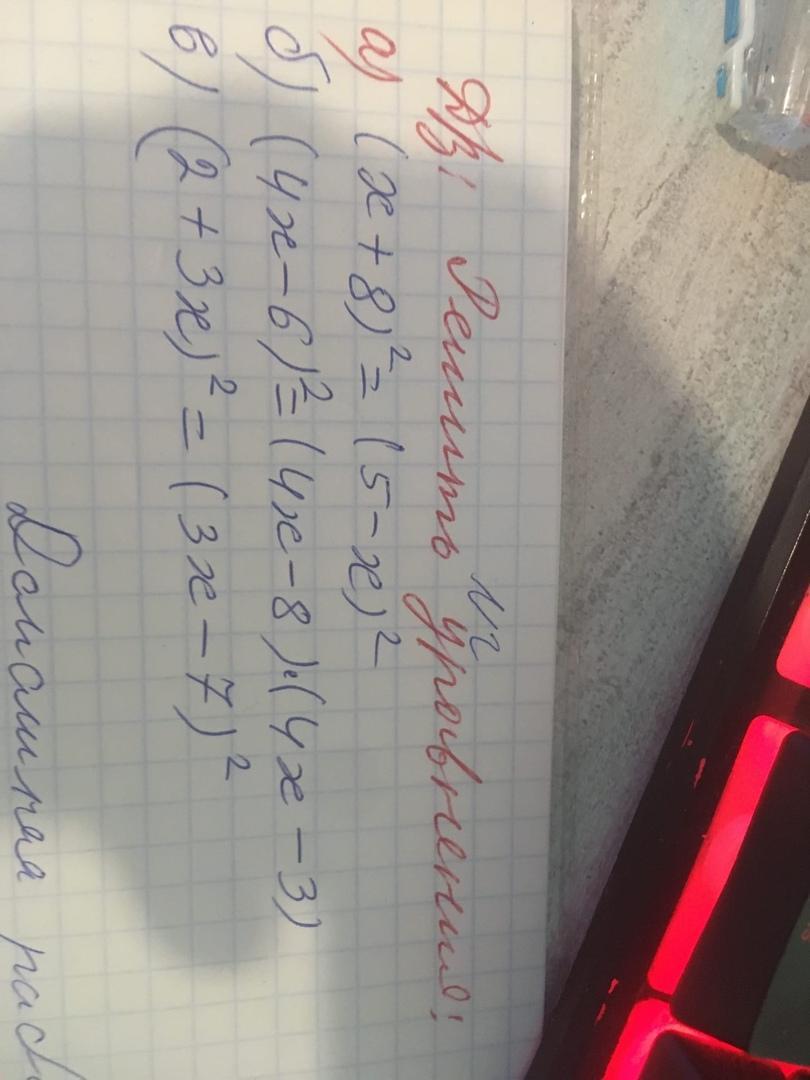 N2
Д/з: Решить уровнения:
а) (x + 8)² = (5 - x)²
б) (4x - 6)² = (4x - 8)·(4x - 3)
в) (2 + 3x)² = (3x - 7)²
Домашняя